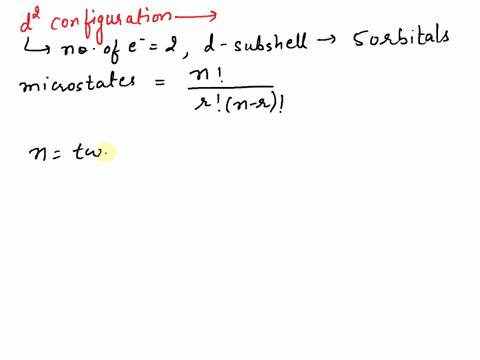 d² configuration →
↳ no. of e⁻ = 2, d-subshell → 5 orbitals
microstates = n! / r!(n-r)!
n = tw